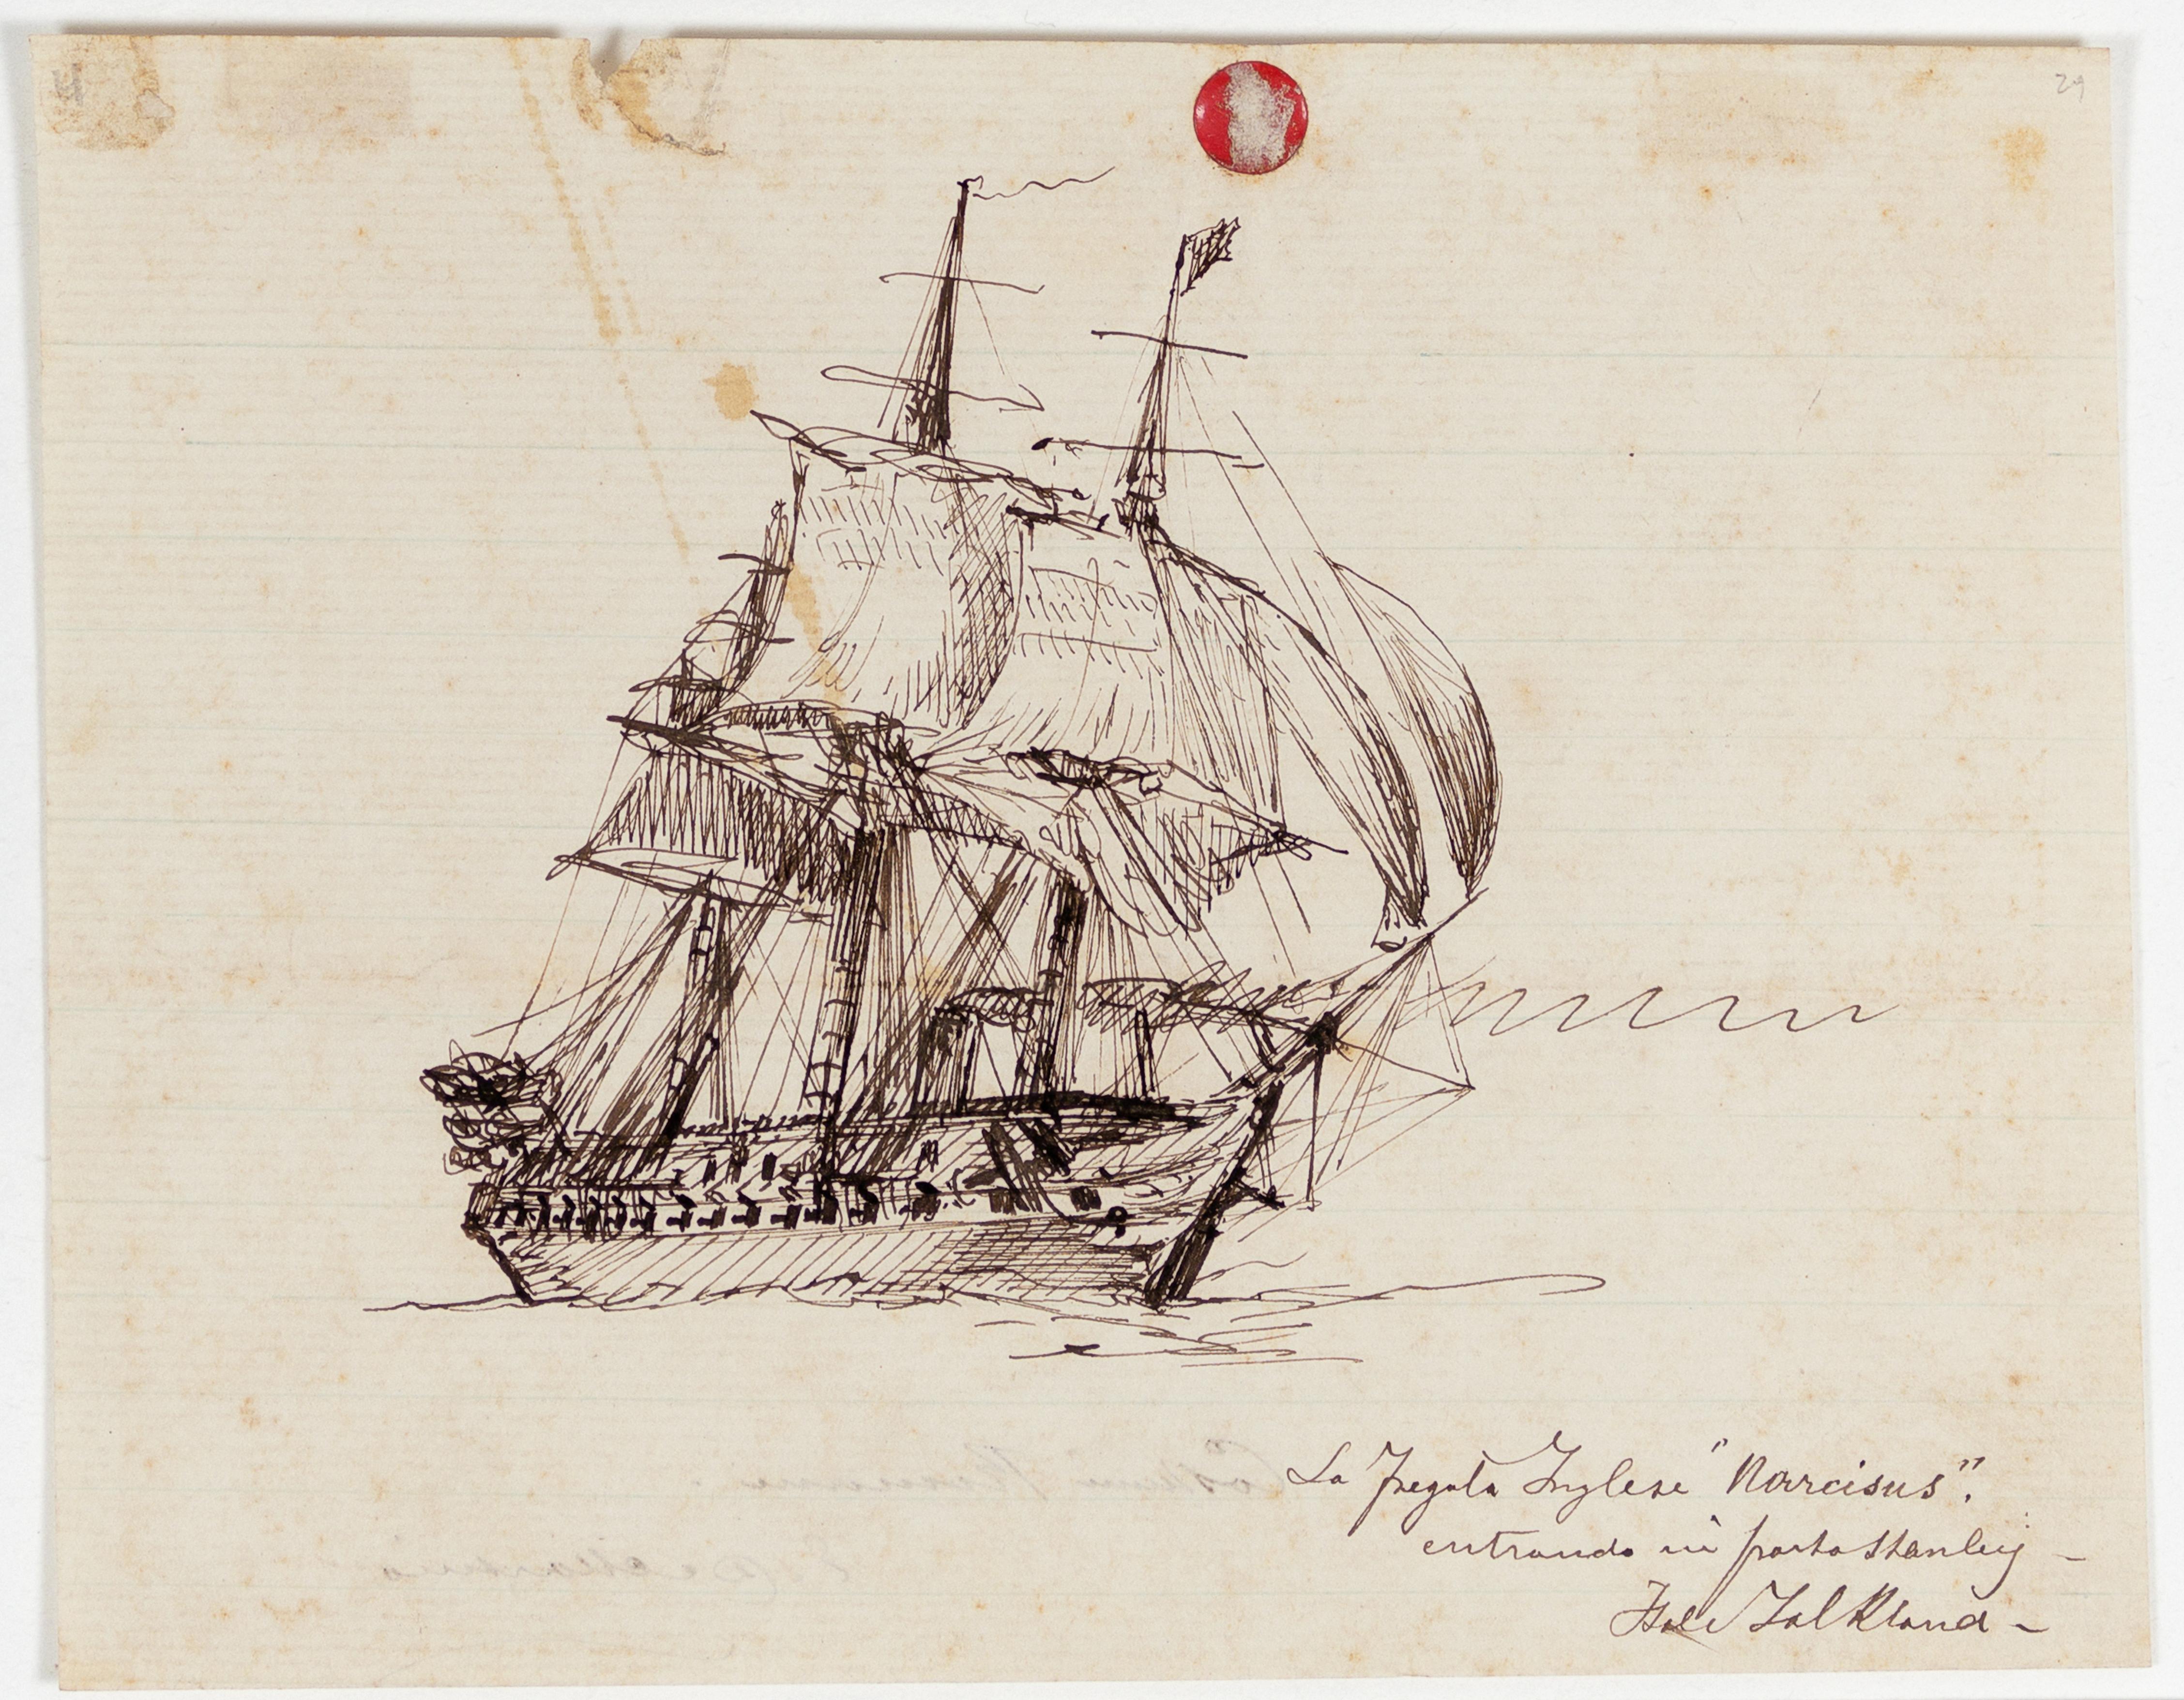 29
La Fregata Inglese "Narcisus".
entrando in porto Stanley -
Isole Falkland -